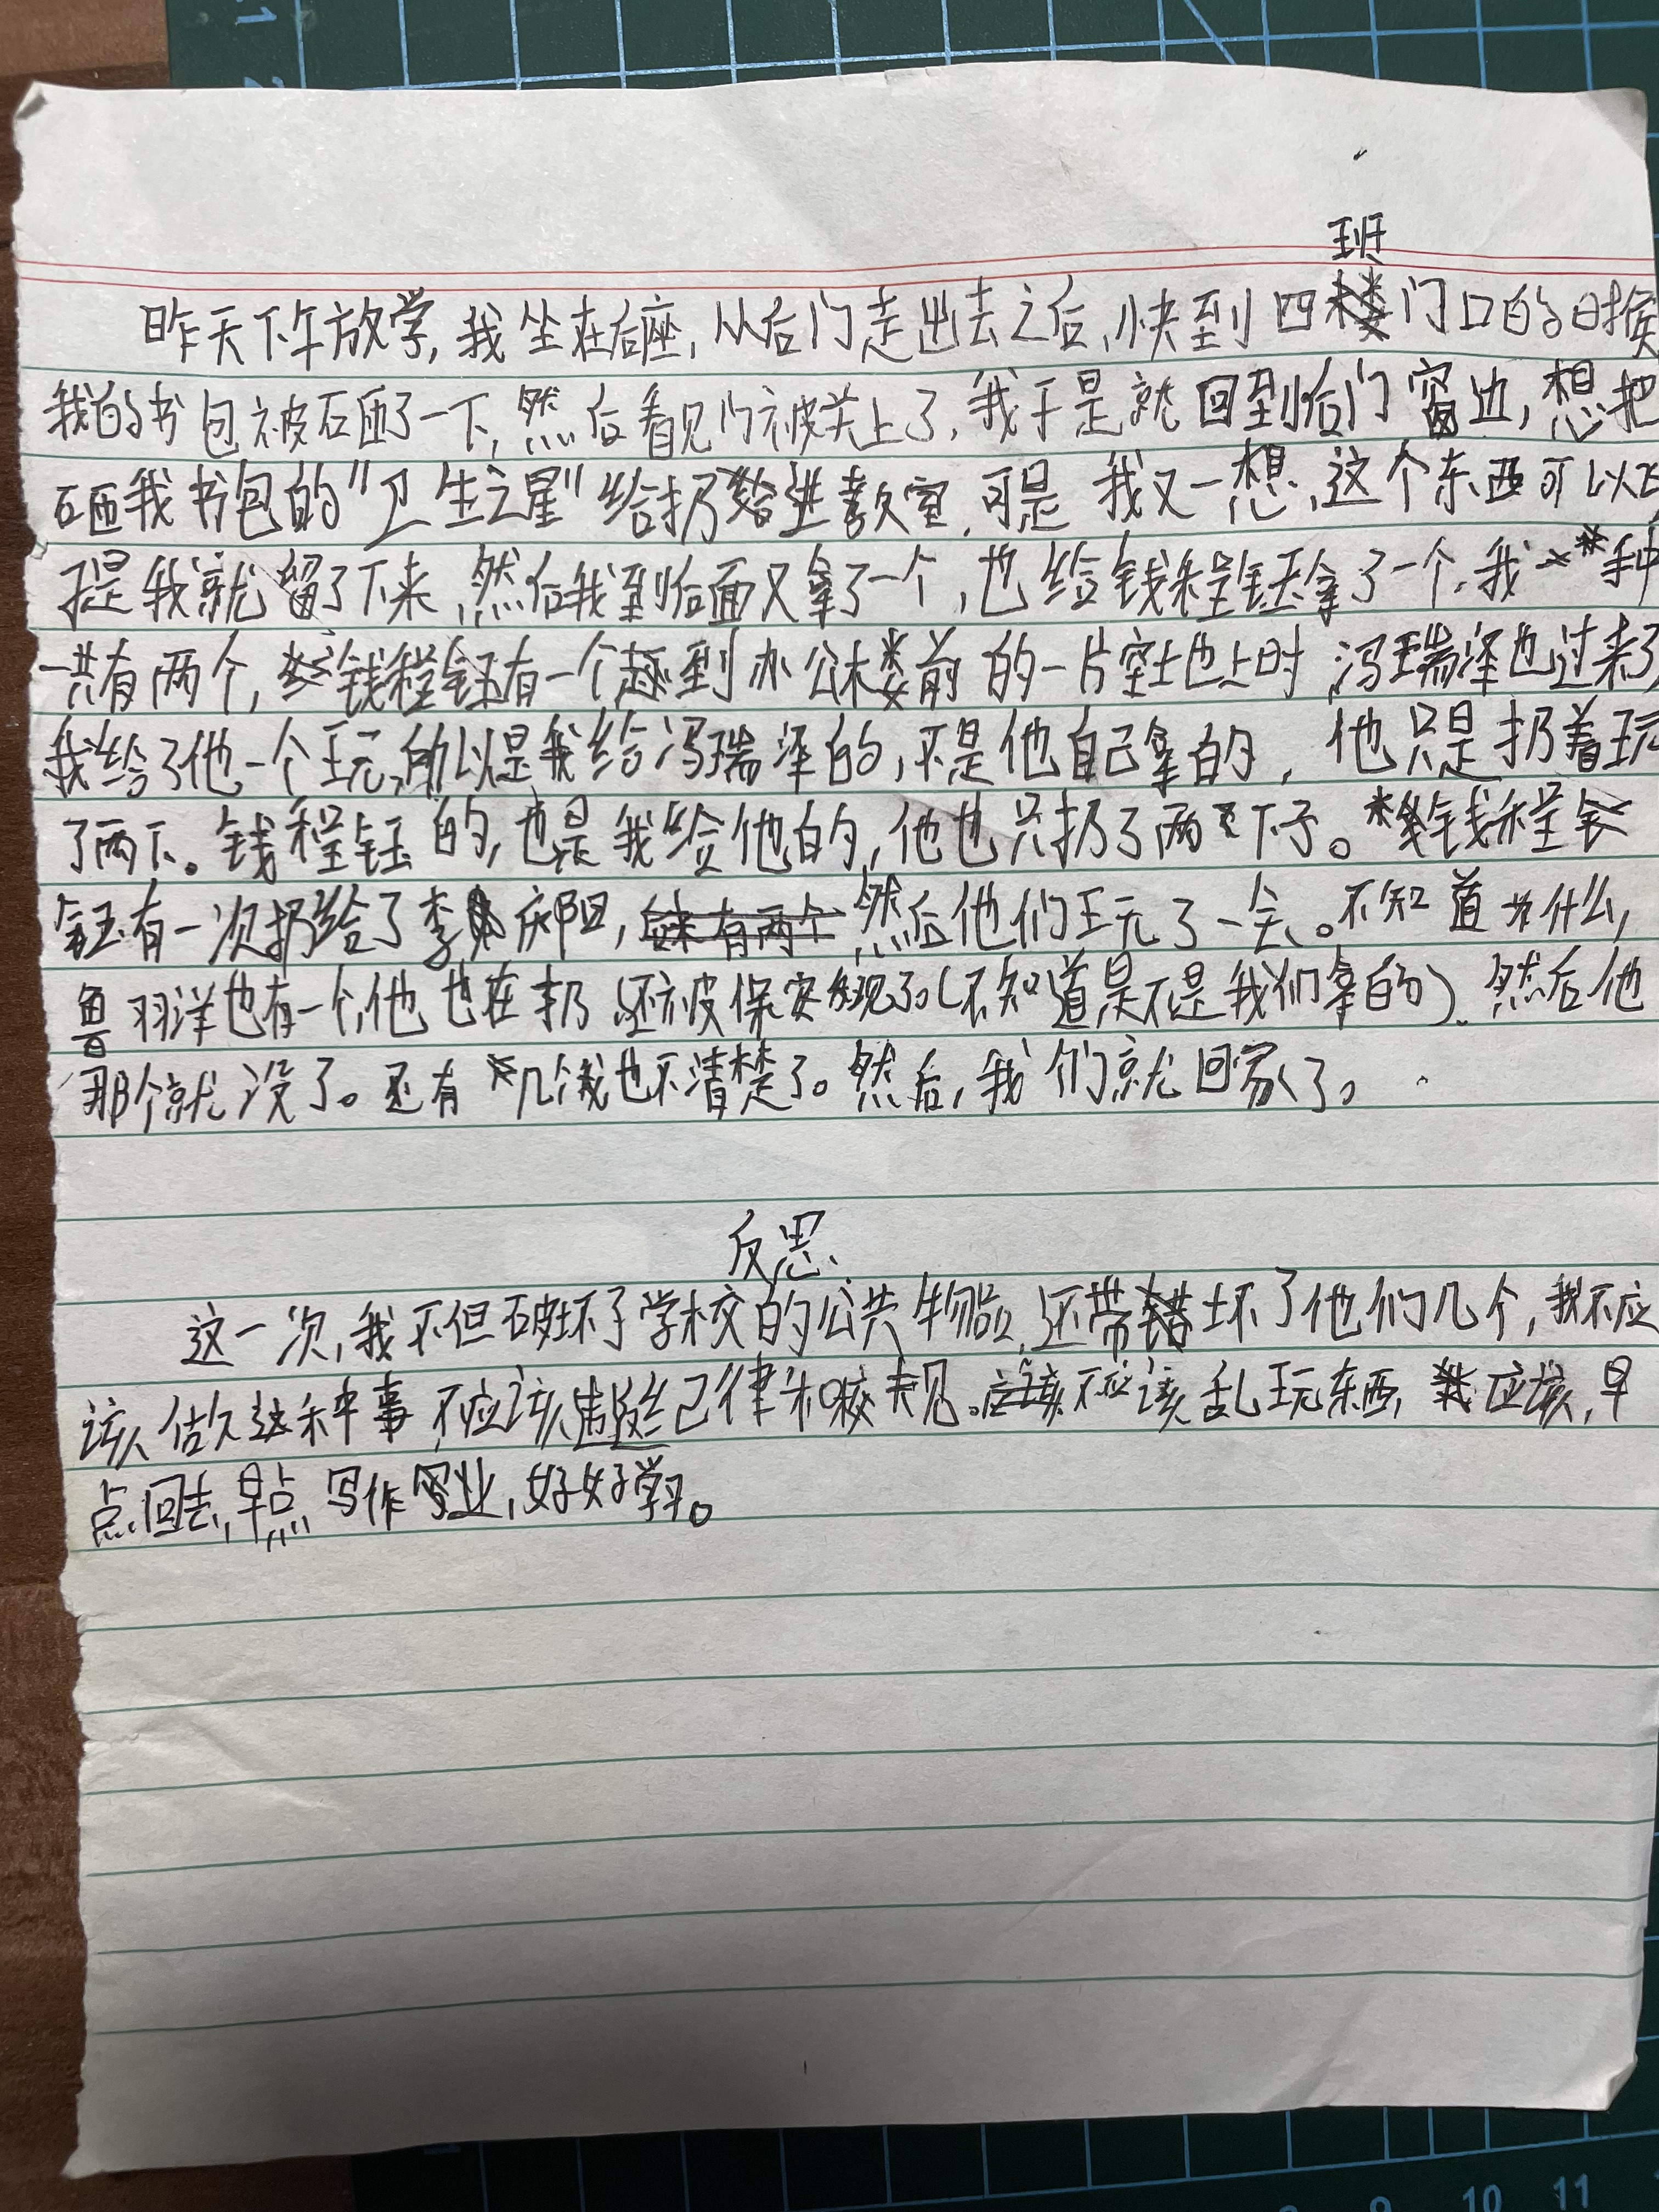 班
昨天下午放学，我坐在后座，从后门走出去之后，快到四门口的时候
我的书包被砸了一下，然后看见门被关上了，我于是就回到后门窗边，想把
砸我书包的“卫生之星”给扔进教室，可是我又一想，这个东西可以
于是我就留了下来，然后我到后面又拿了一个，也给钱程钰拿了一个，我手中
一共有两个，钱程钰有一个，到办公楼前的一片空土地上时，冯瑞泽也过来了，
我给了他一个玩，所以是我给冯瑞泽的，不是他自己拿的，他只是扔着玩
了两下。钱程钰的，也是我给他的，他也只扔了两下子。钱程
钰有一次扔给了李庆阳，然后他们玩了一会。不知道为什么，
鲁羽洋也有一个，他也在扔，还被保安发现了。（不知道是不是我们拿的）。然后他
那个就没了。还有几个我也不清楚了。然后，我们就回家了。
反思
这一次，我不但破坏了学校的公共物品，还带坏了他们几个，我不应
该做这种事，不应该违反纪律和校规。不应该乱玩东西，我应该，早
点回去，早点写作业，好好学习。